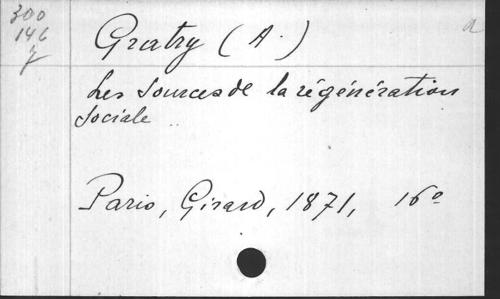 300
146
Gratry (A.)
Les sources de la régénération
sociale
Paris, Girard, 1871, 16º